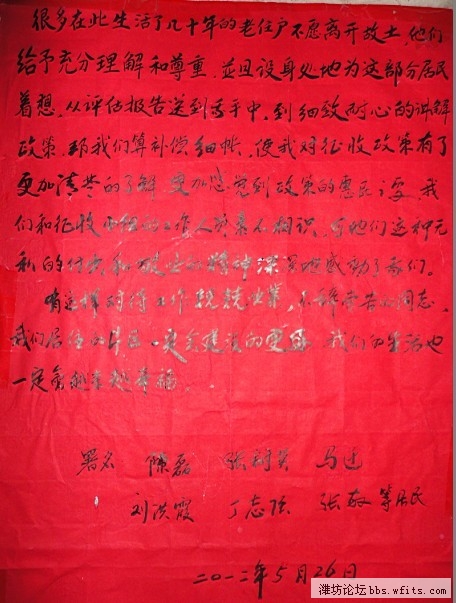 很多在此生活了几十年的老住户不愿离开故土,他们
给予充分理解和尊重,并且设身处地为这部分居民
着想,从评估报告送到手中,到细致耐心的讲解
政策,帮我们算补偿细帐,使我对征收政策有了
更加清楚的了解,更加感觉到政策的惠民,我
们和征收的工作人员素不相识,他们这种无
私的付出和敬业的精神深深地感动了我们。
有这样对待工作兢兢业业,不辞劳苦的同志,
我们居住的片区一定会建设的更,我们的生活也
一定会越来越幸福。
署名 陈磊 张 马
刘洪霞 丁志强 张敬等居民
二〇一二年5月26日
潍坊论坛bbs.wfits.com